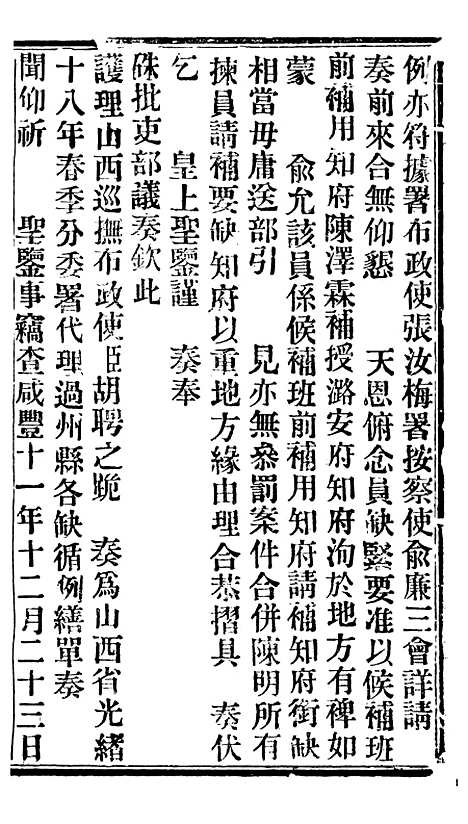 例亦符據署布政使張汝梅署按察使俞廉三會詳請
奏前來合無仰懇 天恩俯念員缺緊要准以候補班
前補用知府陳澤霖補授潞安府知府洵於地方有裨如
蒙 俞允該員係候補班前補用知府請補知府銜缺
相當毋庸送部引 見亦無叅罰案件合併陳明所有
揀員請補要缺知府以重地方緣由理合恭摺具 奏伏
乞 皇上聖鑒謹 奏奉
硃批吏部議奏欽此
護理山西巡撫布政使臣胡聘之跪 奏爲山西省光緒
十八年春季分委署代理過州縣各缺循例繕單奏
聞仰祈 聖鑒事竊查咸豐十一年十二月二十三日